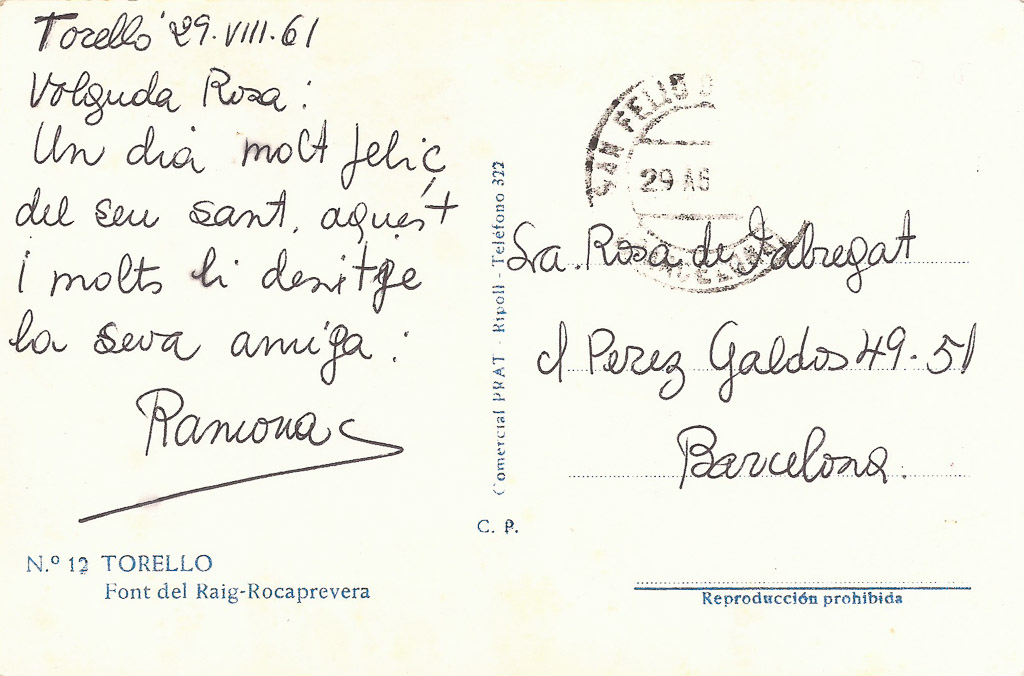 Torelló 29.VIII.61
Volguda Rosa:
Un dia molt feliç
del seu sant, aquest
i molts li desitge
la seva amiga:
Ramona
N.º 12 TORELLO
Font del Raig-Rocaprevera
Comercial PRAT - Ripoll - Teléfono 322
C. P.
SAN FELIO
29 AG
Sra. Rosa de Fabregat
c/ Perez Galdos 49-51
Barcelona.
Reproducción prohibida